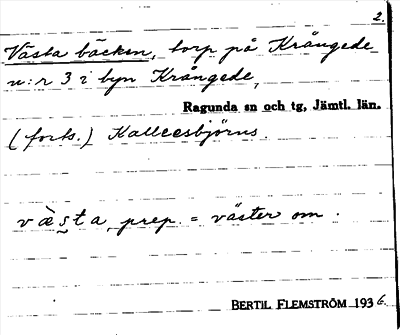 2.
Västa bäcken, torp på Krångede
n:r 3 i byn Krångede,
Ragunda sn och tg, Jämtl. län.
(forts.) Kalleesbjörns.
và̀s̬ta prep. = väster om.
BERTIL FLEMSTRÖM 1936.